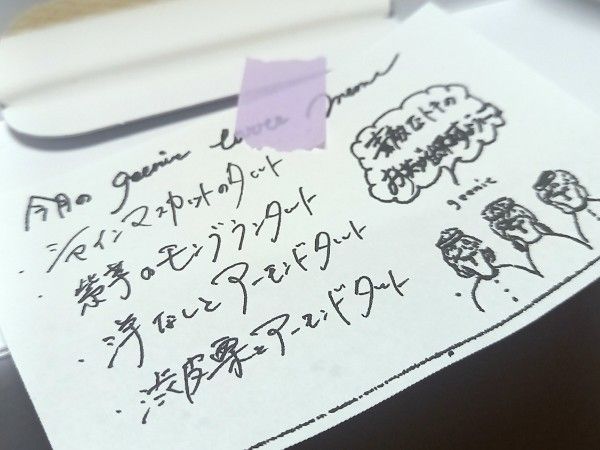 今月の geenie sweets menu
・シャインマスカットのタルト
・紫芋のモンブランタルト
・洋なしとアーモンドタルト
・渋皮栗とアーモンドタルト
素敵なトキの
geenie